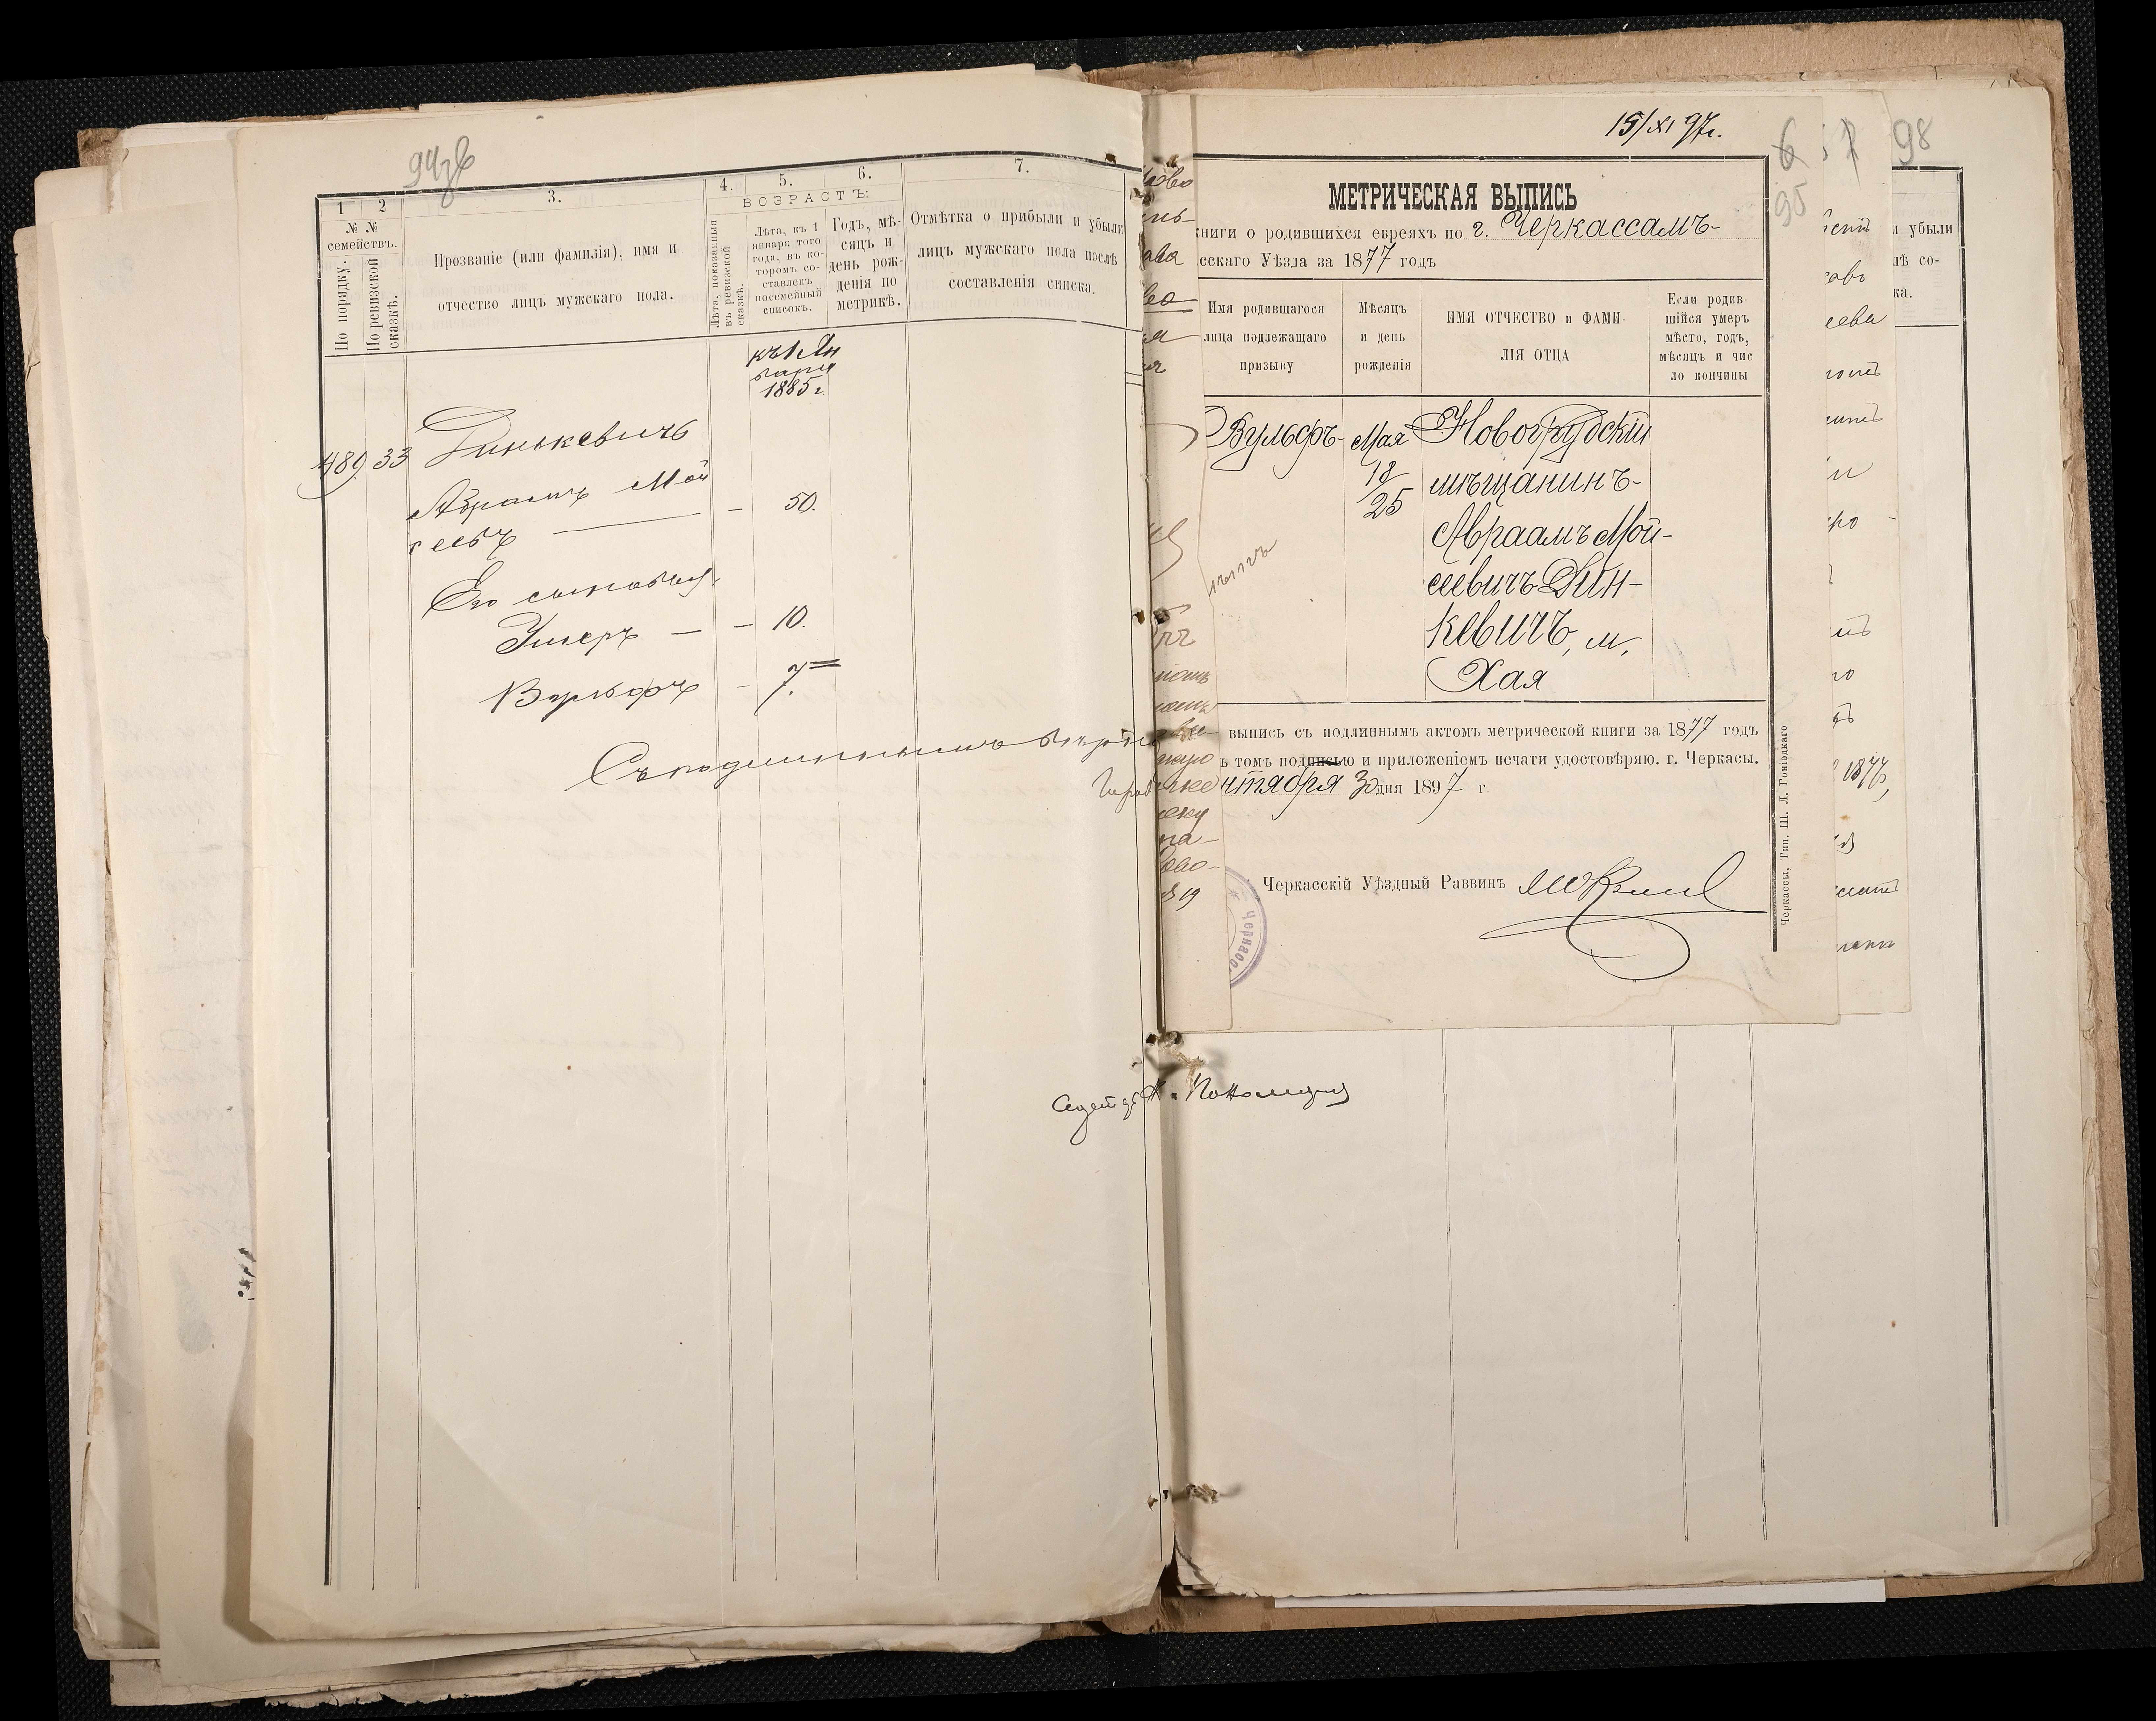 94 об
1
2
3.
4.
5.
6.
7.
№ №
семействъ.
По порядку.
По ревизской
сказкѣ.
Прозваніе (или фамилія), имя и
отчество лицъ мужскаго пола.
ВОЗРАСТЪ:
Лѣта, показанныя
въ ревизской
сказкѣ.
Лѣта, къ 1
января того
года, въ ко-
торомъ со-
ставленъ
посемейный
списокъ.
Годъ, мѣ-
сяцъ и
день рож-
денія по
метрикѣ.
Отмѣтка о прибыли и убыли
лицъ мужскаго пола послѣ
составленія списка.
къ 1 Ян
варя
1885 г.
489 33 Динькевичъ
Абрамъ Мой
сеевъ — 50.
Его сыновья:
Ушеръ — 10.
Вульфъ — 7.
Съ подлиннымъ вѣрно
15/XI 97 г.
6
95
98
МЕТРИЧЕСКАЯ ВЫПИСЬ
книги о родившихся евреяхъ по г. Черкассамъ-
сскаго Уѣзда за 1877 годъ
Имя родившагося
лица подлежащаго
призыву
Мѣсяцъ
и день
рожденія
ИМЯ ОТЧЕСТВО и ФАМИ-
ЛІЯ ОТЦА
Если родив-
шійся умеръ
мѣсто, годъ,
мѣсяцъ и чис
ло кончины
Вульфъ- Мая Новогрудскій
18/25 мѣщанинъ-
Авраамъ Мой-
сеевичъ Дин-
кевичъ, м.
Хая
выпись съ подлиннымъ актомъ метрической книги за 1877 годъ
ъ томъ подписью и приложеніемъ печати удостовѣряю. г. Черкасы.
нтября 30 дня 1897 г.
Черкасскій Уѣздный Раввинъ
Черкассы, Тип. Ш. Л. Гоніодкаго
Черкасс
и убыли
лѣ со-
ка.
1877,